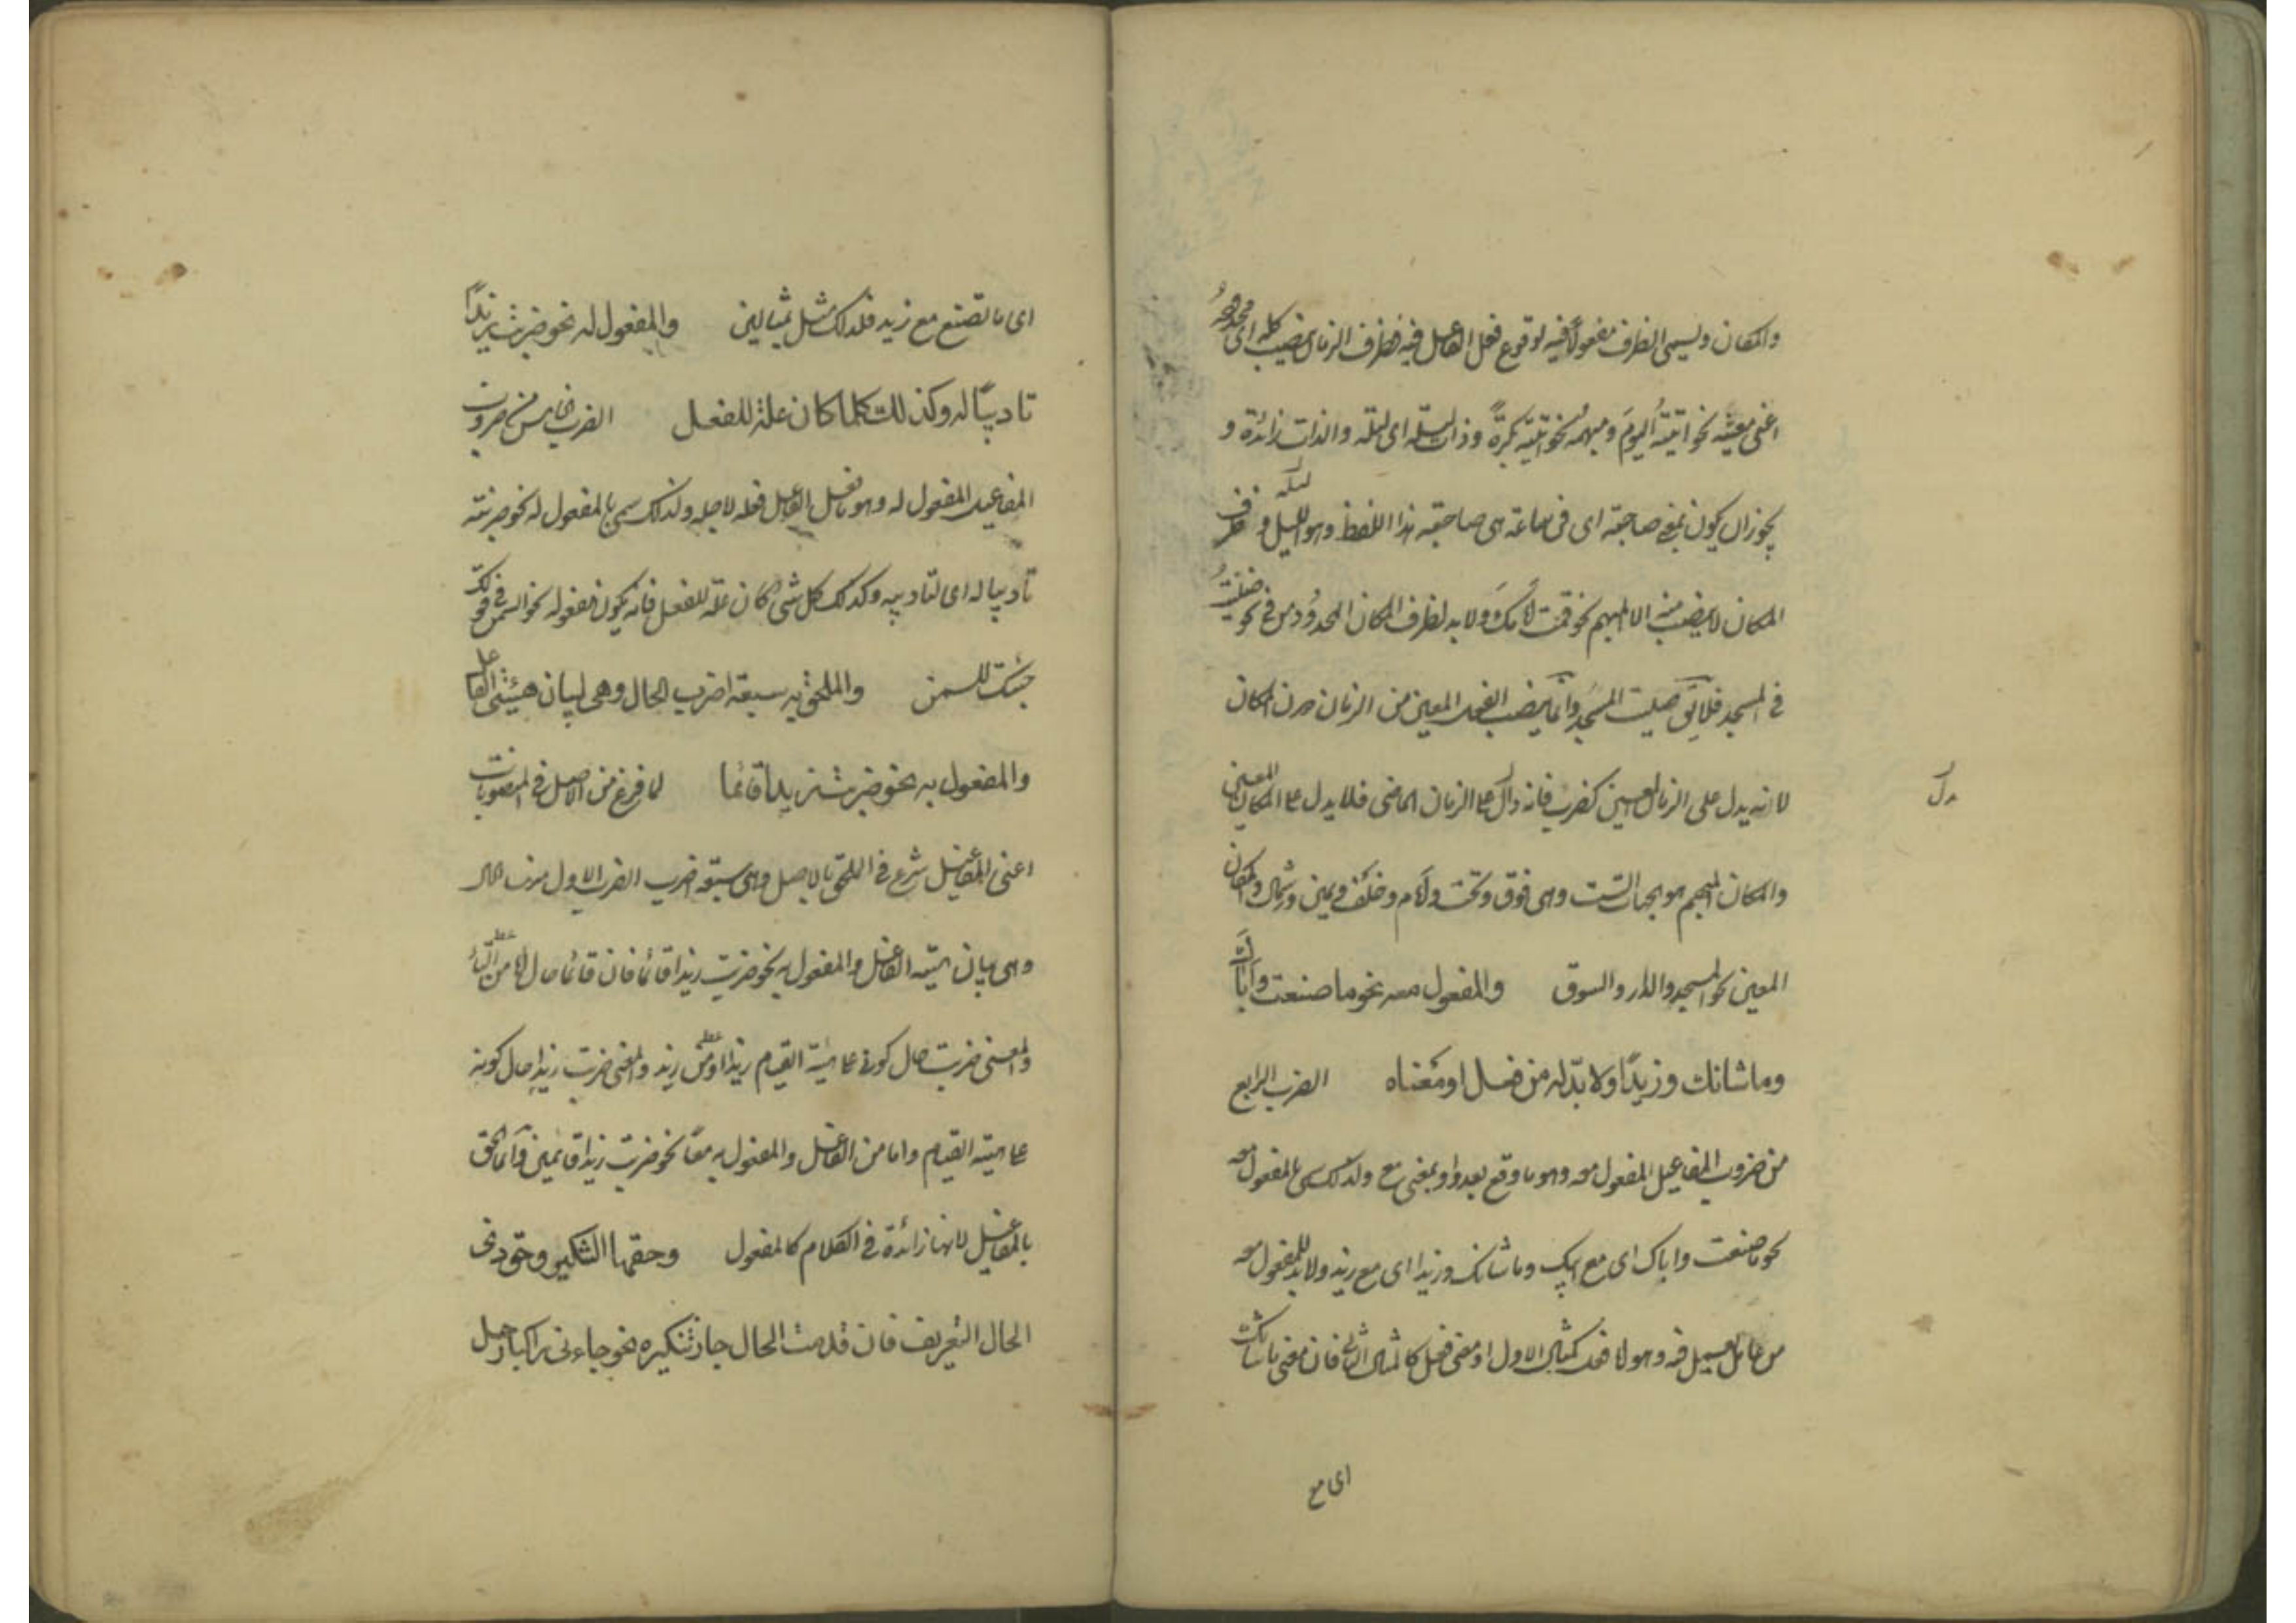 والمكان ويسمى الظرف مفعولا فيه لوقوع فعل الفاعل فيه فظرف الزمان ينصب كله اى محدوده
اعنى معينه نحو اتيته اليومَ ومبهمه نحو اتيته بكرةً وذات ليلة اى ليلة والذات زائدة و
يجوز ان يكون بمعنى صاحبته اى فى ساعة هى صاحبته هذا اللفظ وهو الليلة وظرف
المكان لا ينصب منه الا المبهم نحو قمت امامك ولا بد لظرف المكان المحدود من فى نحو صليتُ
فى المسجد فلا يق صليت المسجد وانما ينصب الفعل المعين من الزمان دون المكان
لانه يدل على الزمان المعين كضرب فانه دال على الزمان الماضى فلا يدل على المكان المعين
دل
والمكان المبهم هو الجهات الست وهى فوق وتحت وامام وخلف ويمين وشمال والمكان
المعين نحو المسجد والدار والسوق والمفعول معه نحو ما صنعت واباك
وما شانك وزيدًا ولا بدّ له من فعل او معناه الضرب الرابع
من ضروب المفاعيل المفعول معه وهو ما وقع بعد واو بمعنى مع ولذلك سمى بالمفعول معه
نحو ما صنعت واباك اى مع ابيك وما شانك وزيدا اى مع زيد ولا بد للمفعول معه
من عامل يعمل فيه وهو لا فعل كمثال الاول او معنى فعل كالمثال الثانى فان معنى ما شانك
اى مع
اى ما تصنع مع زيد فلذلك مثل بمثالين والمفعول له نحو ضربت زيدًا
تاديبًا له وكذلك كلما كان علة للفعل الضرب الخامس من ضروب
المفاعيل المفعول له وهو ما فعل الفاعل فعله لاجله ولذلك سمى بالمفعول له نحو ضربته
تاديبا له اى لتاديبه وكذلك كل شئ كان علة للفعل فانه يكون مفعولا له نحو السمن فى قولك
جئتك للسمن والملحق به سبعة اضرب الحال وهى لبيان هيئتى الفاعل
والمفعول به نحو ضربت زيدا قائما لما فرغ من الاصل فى المنصوبات
اعنى المفاعيل شرع فى الملحق بالاصل وهى سبعة اضرب الضرب الاول منها الحال
وهى بيان هيئة الفاعل والمفعول به نحو ضربت زيدا قائما فان قائما حال اما من التاء
والمعنى ضربت حال كونى على هيئة القيام زيدا او من زيد والمعنى ضربت زيدا حال كونه
على هيئة القيام واما من الفاعل والمفعول به معًا نحو ضربت زيدا قائمين وانما الحق
بالمفاعيل لانها زائدة فى الكلام كالمفعول وحقها التنكير وحق ذى
الحال التعريف فان قدمت الحال جاز تنكيره نحو جاءنى راكبا رجل